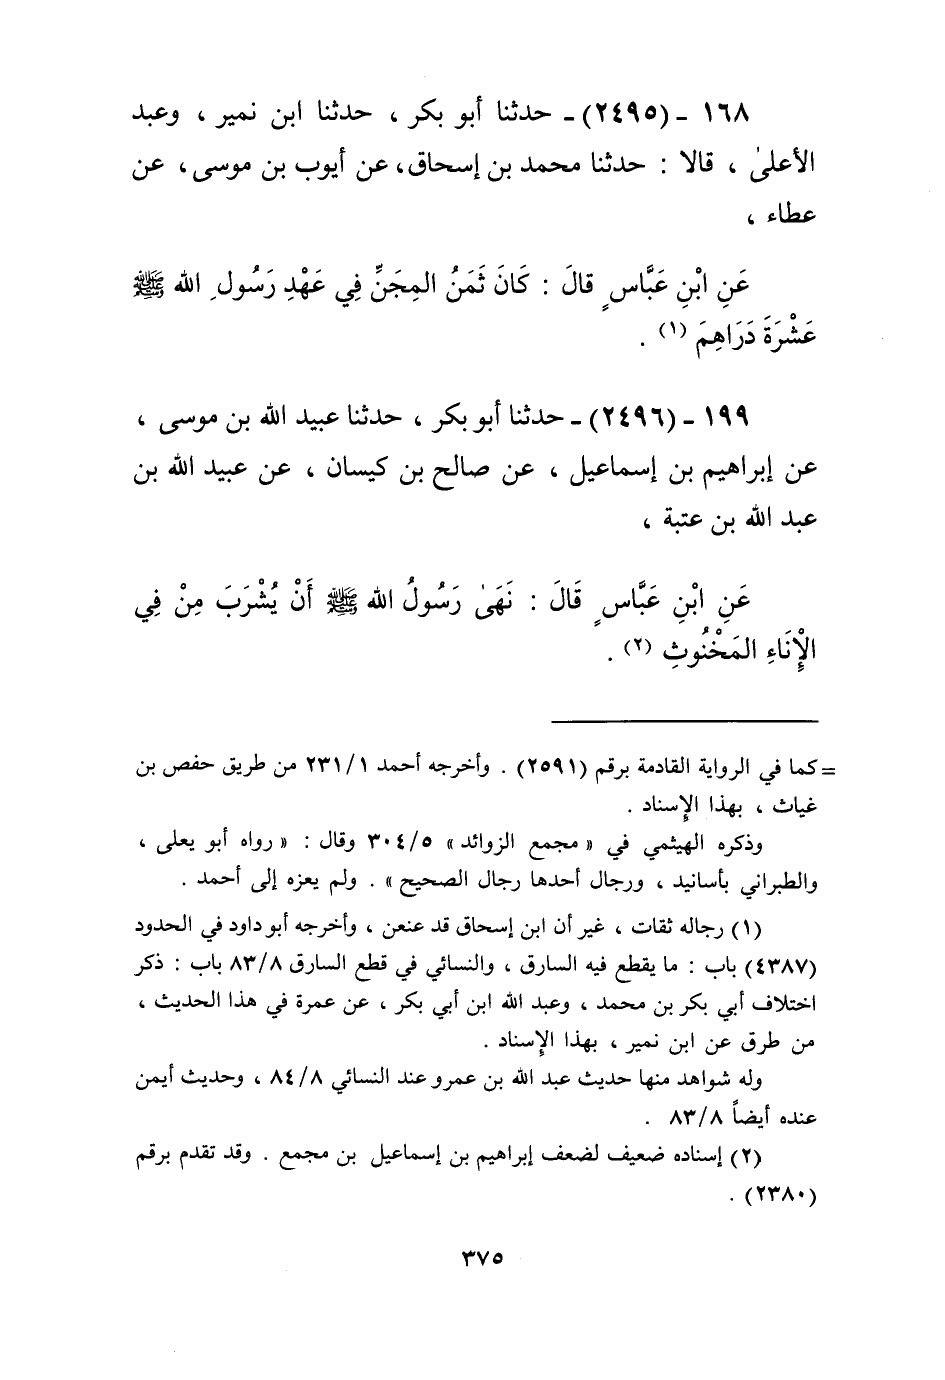 ١٦٨ - (٢٤٩٥) - حدثنا أبو بكر ، حدثنا ابن نمير ، وعبد
الأعلىٰ ، قالا : حدثنا محمد بن إسحاق، عن أيوب بن موسى، عن
عطاء ،
عَنِ ابْنِ عَبَّاسٍ قالَ : كَانَ ثَمَنُ المِجَنِّ فِي عَهْدِ رَسُولِ الله ﷺ
عَشْرَةَ دَرَاهِمَ (١) .
١٩٩ - (٢٤٩٦) - حدثنا أبو بكر ، حدثنا عبيد الله بن موسى ،
عن إبراهيم بن إسماعيل ، عن صالح بن كيسان ، عن عبيد الله بن
عبد الله بن عتبة ،
عَنِ ابْنِ عَبَّاسٍ قَالَ : نَهَىٰ رَسُولُ الله ﷺ أَنْ يُشْرَبَ مِنْ فِي
الْإِنَاءِ المَخْنُوثِ (٢) .
= كما في الرواية القادمة برقم (٢٥٩١) . وأخرجه أحمد ٢٣١/١ من طريق حفص بن
غياث ، بهذا الإسناد .
وذكره الهيثمي في « مجمع الزوائد » ٣٠٤/٥ وقال : « رواه أبو يعلى ،
والطبراني بأسانيد ، ورجال أحدها رجال الصحيح » . ولم يعزه إلى أحمد .
(١) رجاله ثقات ، غير أن ابن إسحاق قد عنعن ، وأخرجه أبو داود في الحدود
(٤٣٨٧) باب : ما يقطع فيه السارق ، والنسائي في قطع السارق ٨٣/٨ باب : ذكر
اختلاف أبي بكر بن محمد ، وعبد الله ابن أبي بكر ، عن عمرة في هذا الحديث ،
من طرق عن ابن نمير ، بهذا الإسناد .
وله شواهد منها حديث عبد الله بن عمرو عند النسائي ٨٤/٨ ، وحديث أيمن
عنده أيضاً ٨٣/٨ .
(٢) إسناده ضعيف لضعف إبراهيم بن إسماعيل بن مجمع . وقد تقدم برقم
(٢٣٨٠) .
٣٧٥